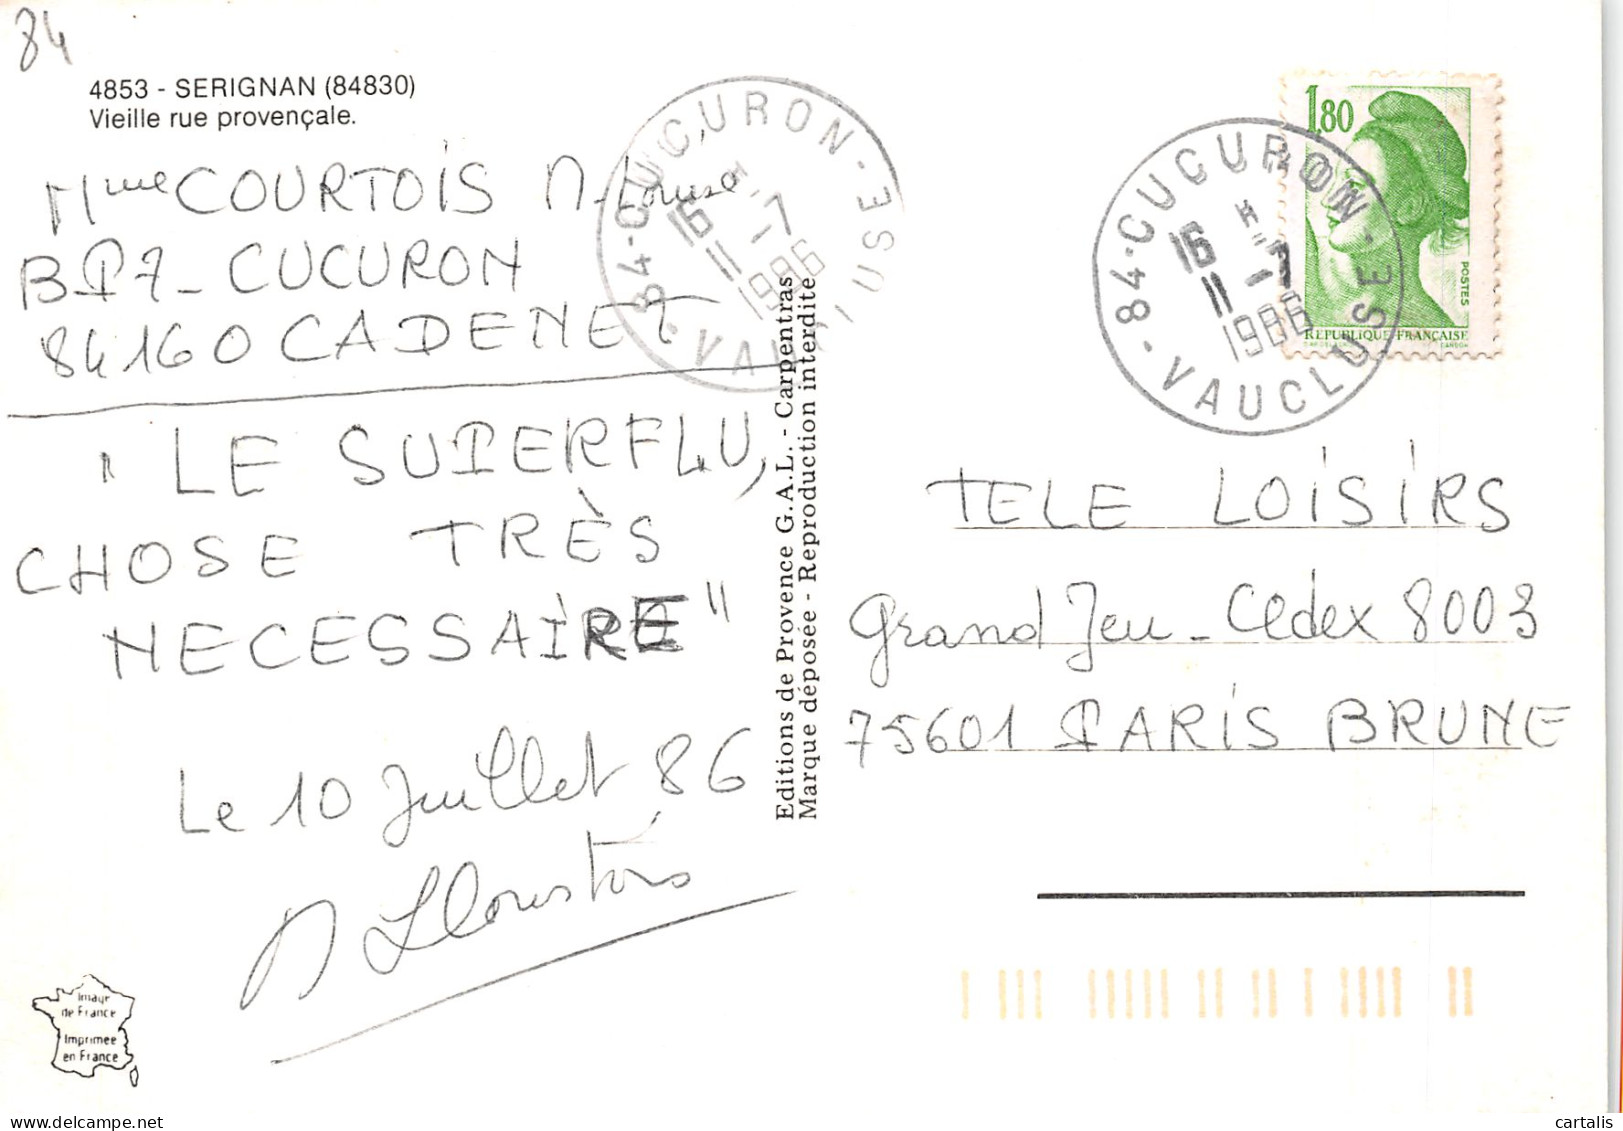 84
4853 - SERIGNAN (84830)
Vieille rue provençale.
Mme COURTOIS M-Louise
BP7_ CUCURON
84160 CADENET
" LE SUPERFLU,
CHOSE TRÈS
NECESSAIRE"
Le 10 Juillet 86
Editions de Provence G.A.L. - Carpentras
Marque déposée - Reproduction interdite
84-CUCURON-
VAUCLUSE
16 H
11 -7
1986
84-CUCURON-
VAUCLUSE-
16 H
11 -7
1986
1,80
POSTES
REPUBLIQUE FRANÇAISE
GANDON
TELE LOISIRS
Grand Jeu_ Cedex 8003
75601 PARIS BRUNE
Image
de France
Imprimée
en France
cartalis
delcampe.net